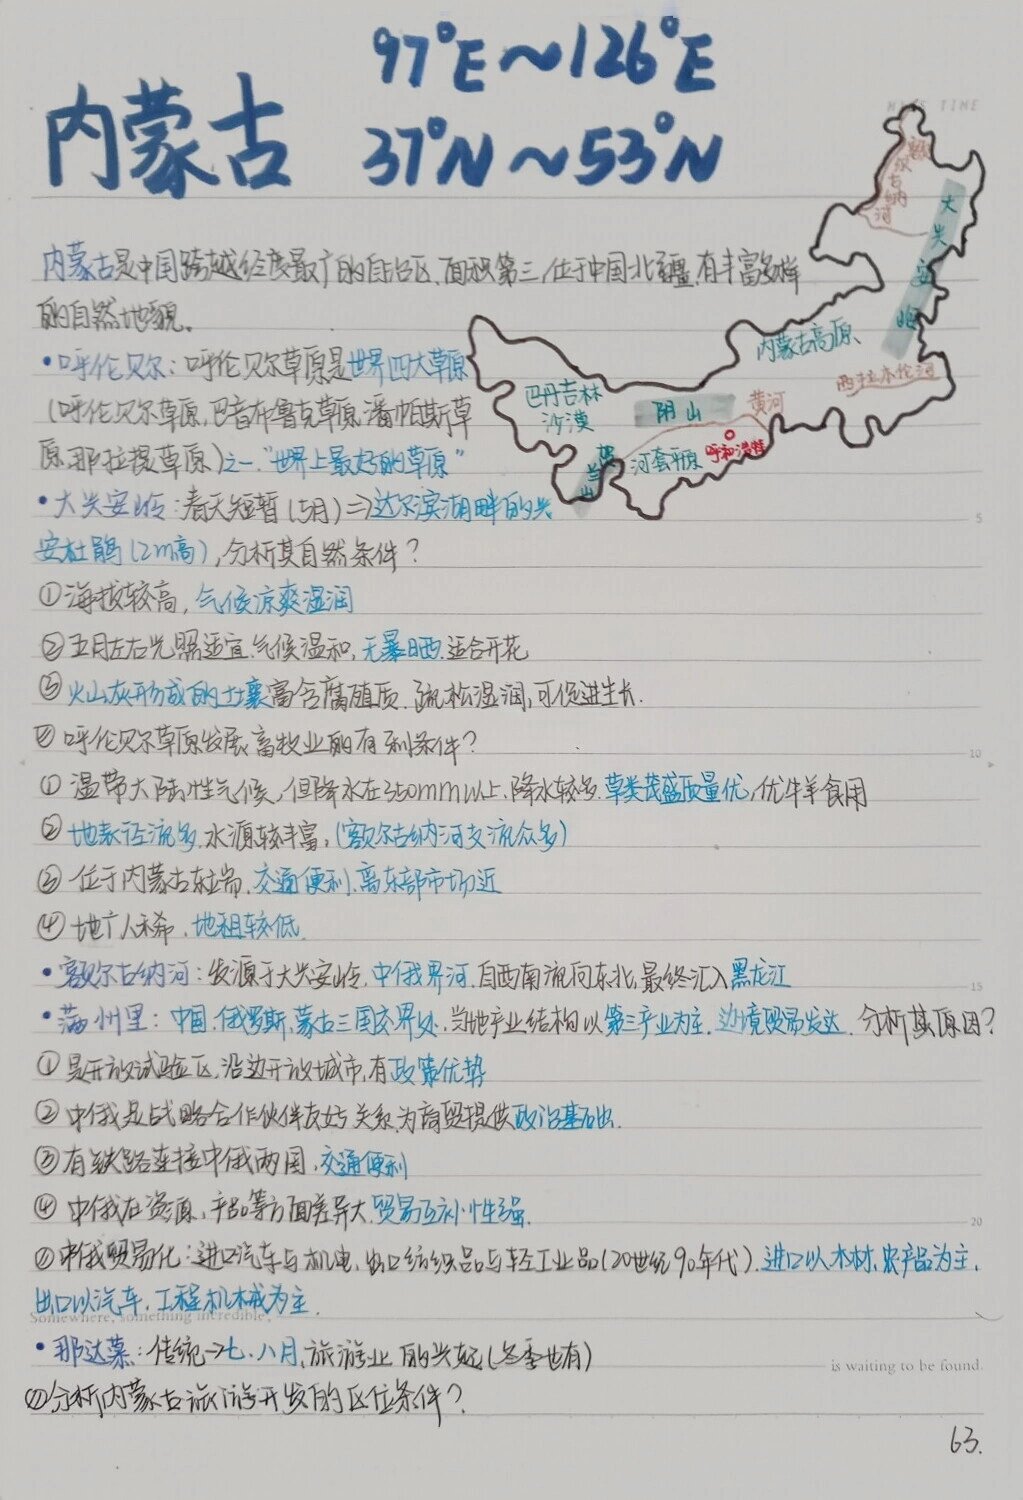 97°E～126°E
内蒙古 37°N～53°N
TIME
额尔古纳河
大兴安岭
内蒙古是中国跨越经度最广的自治区,面积第三,位于中国北疆,有丰富多样
的自然地貌。
内蒙古高原
西拉木伦河
巴丹吉林
沙漠
阴山
黄河
呼和浩特
河套平原
贺兰山
•呼伦贝尔:呼伦贝尔草原是世界四大草原
(呼伦贝尔草原,巴音布鲁克草原,潘帕斯草
原,那拉提草原)之一."世界上最好的草原"
•大兴安岭:春天短暂(5月)⇒达尔滨湖畔的兴
安杜鹃(2m高),分析其自然条件?
①海拔较高,气候凉爽湿润
②五月左右光照适宜.气候温和,无暴晒.适合开花
③火山灰形成的土壤富含腐殖质.疏松湿润,可促进生长.
呼伦贝尔草原发展畜牧业的有利条件?
①温带大陆性气候,但降水在350mm以上.降水较多.草类茂盛质量优,优牛羊食用
②地表径流多.水源较丰富,(额尔古纳河支流众多)
③位于内蒙古东端.交通便利.离东部市场近
④地广人稀.地租较低.
•额尔古纳河:发源于大兴安岭.中俄界河.自西南流向东北,最终汇入黑龙江
•满州里:中国.俄罗斯,蒙古三国交界处,当地产业结构以第三产业为主.边境贸易发达.分析其原因?
①是开放试验区,沿边开放城市,有政策优势
②中俄是战略合作伙伴友好关系.为商贸提供政治基础.
③有铁路连接中俄两国,交通便利
④中俄在资源,产品等方面差异大.贸易互补性强.
中俄贸易化:进口汽车与机电,出口纺织品与轻工业品(20世纪90年代).进口以木材,农产品为主.
出口以汽车,工程机械为主.
Somewhere, something incredible,
•那达慕:传统→七.八月,旅游业的兴起(冬季也有)
is waiting to be found.
分析内蒙古旅游开发的区位条件?
63.
5
10
15
20